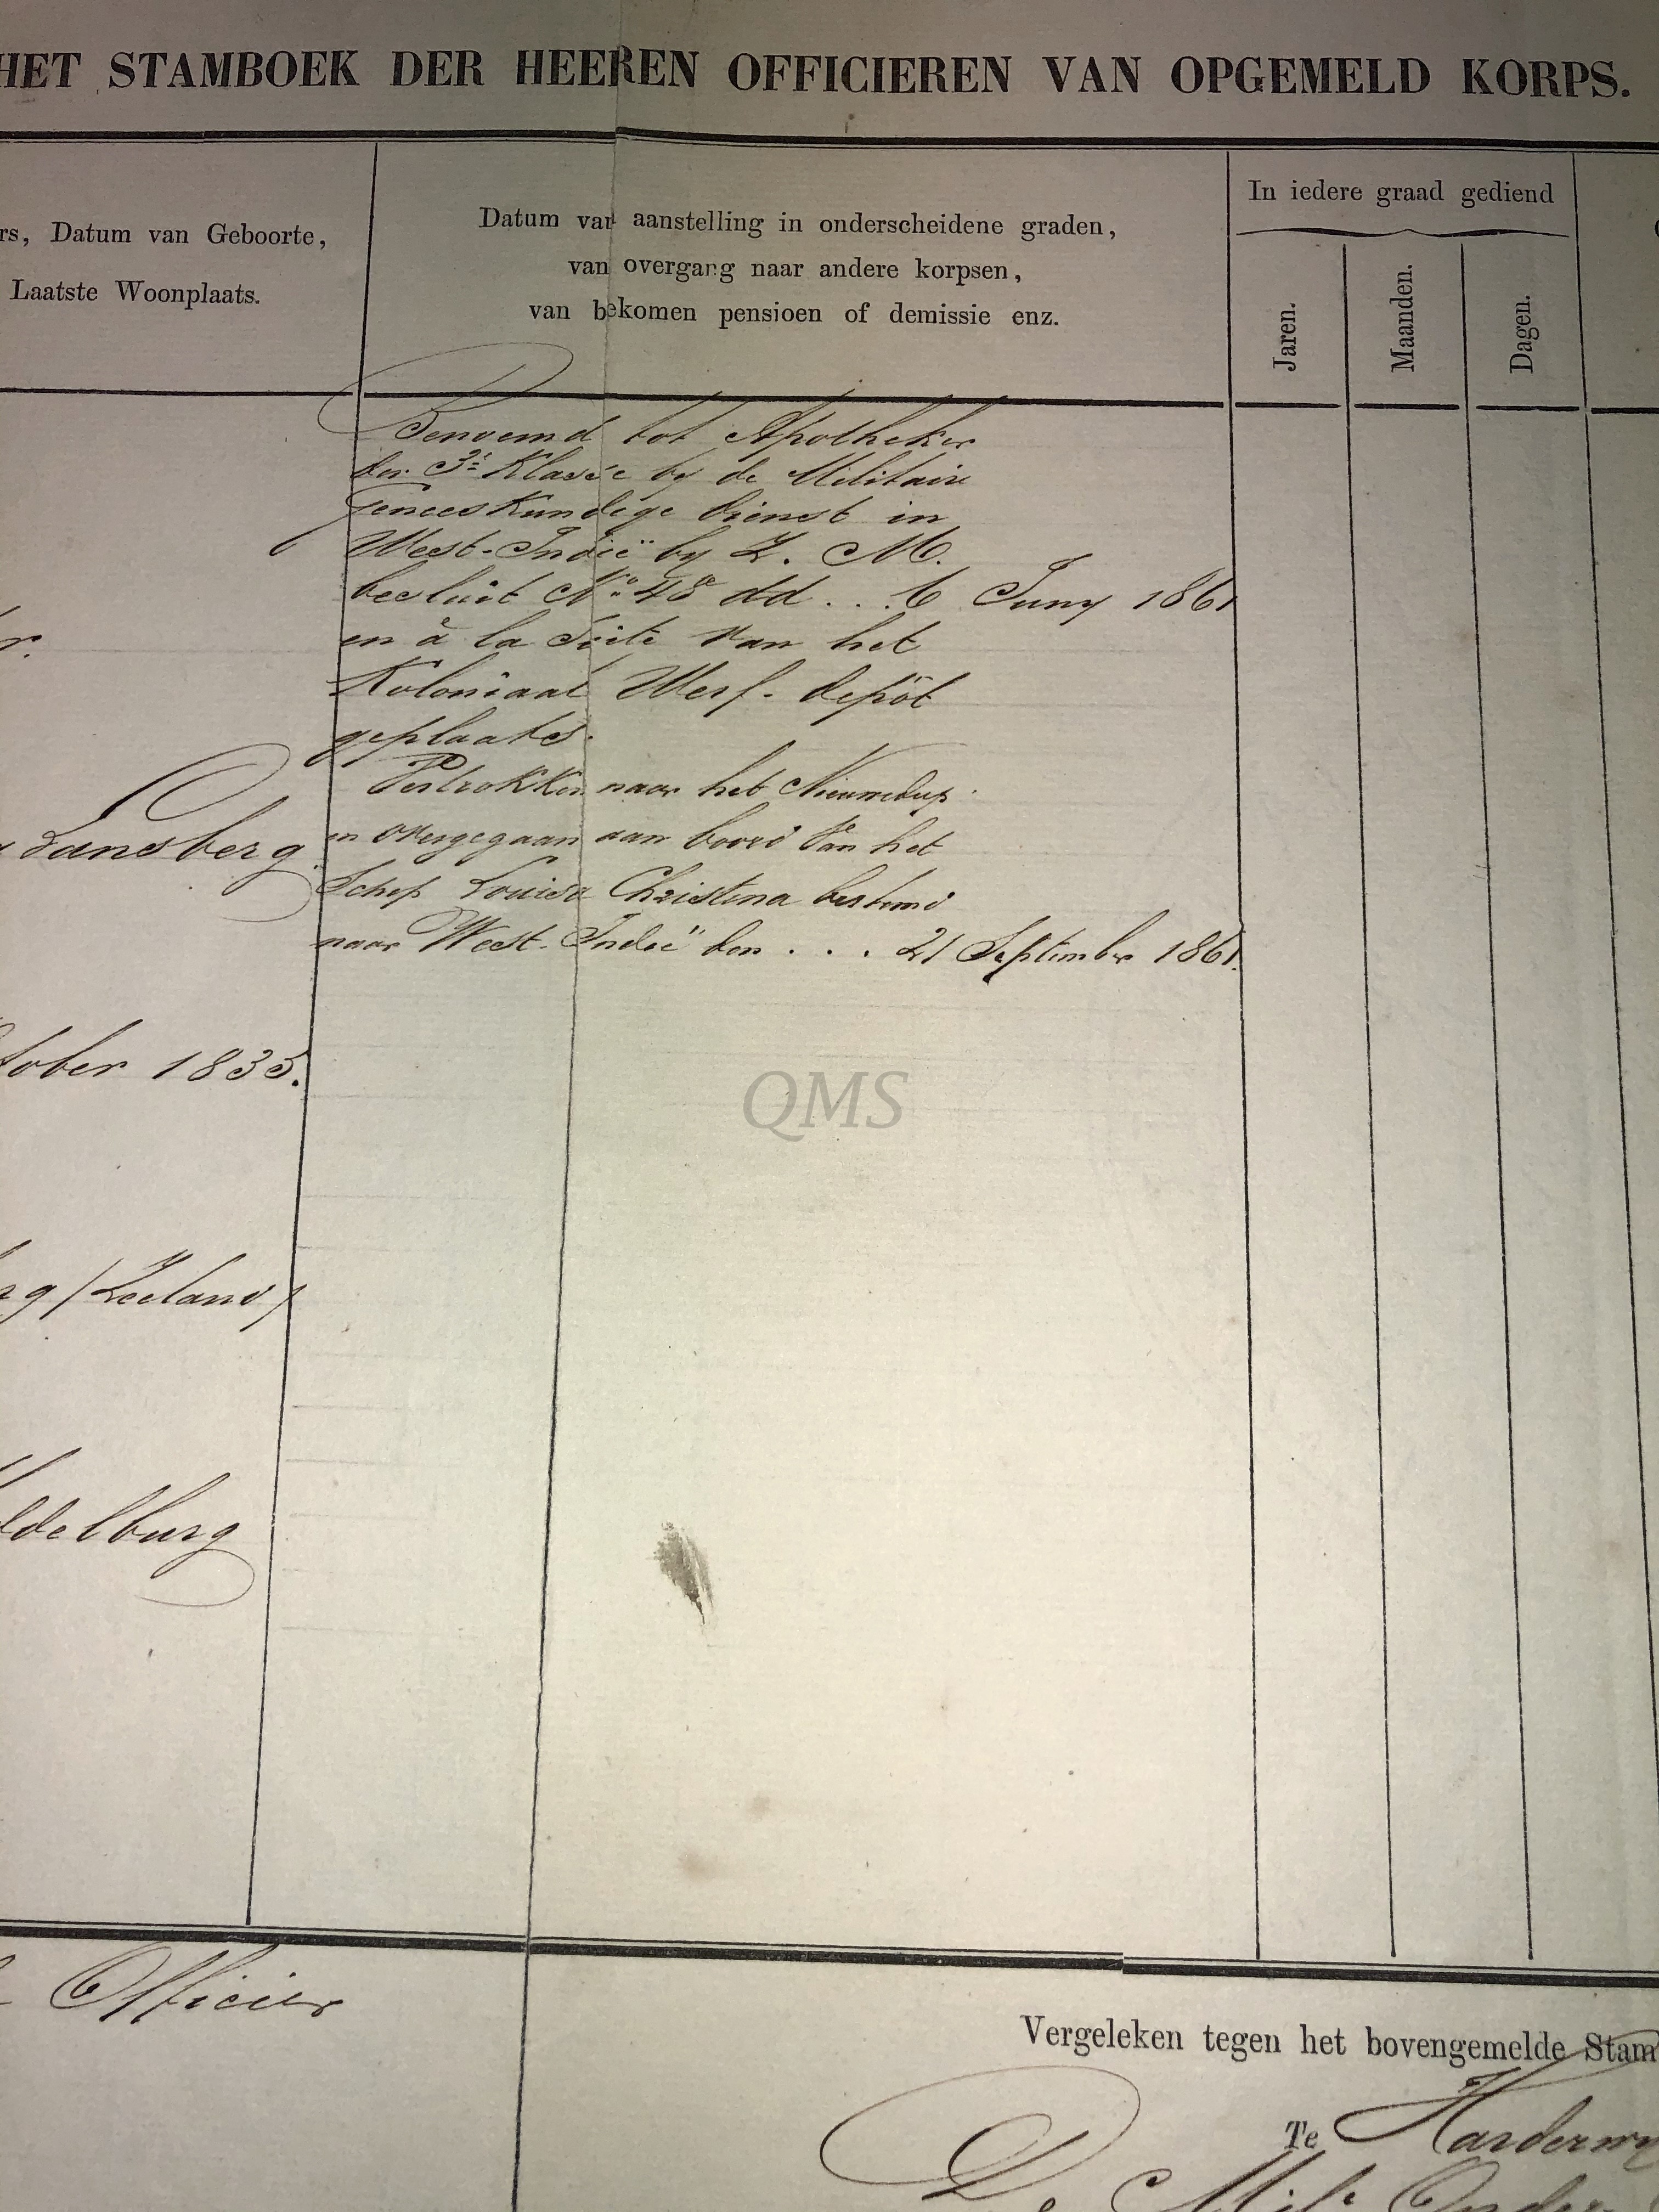 HET STAMBOEK DER HEEREN OFFICIEREN VAN OPGEMELD KORPS.
rs, Datum van Geboorte,
Laatste Woonplaats.
Datum van aanstelling in onderscheidene graden,
van overgang naar andere korpsen,
van bekomen pensioen of demissie enz.
In iedere graad gediend
Jaren.
Maanden.
Dagen.
Benoemd tot Apotheker
der 3e Klasse by de Militair
Geneeskundige dienst in
West-Indië by Z. M.
besluit No 48 dd . . 6 Juny 1861
en à la suite van het
Koloniaal Werf-depôt
geplaatst.
Vertrokken naar het Nieuwediep
en overgegaan aan boord van het
Schip Louisa Christina bestemd
naar West-Indië den . . . 21 September 1861.
r.
Lansberg
tober 1835.
rg (Zeeland)
ddelburg
QMS
Officier
Vergeleken tegen het bovengemelde Stam
Te Harderwy
De